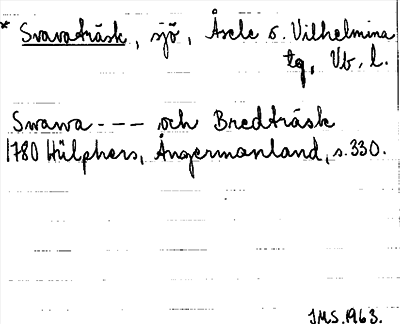 * Svavaträsk, sjö, Åsele o. Vilhelmina
tg, Vb. l.
Swawa --- och Bredträsk
1780 Hülphers, Ångermanland, s. 330.
IMS. 1963.